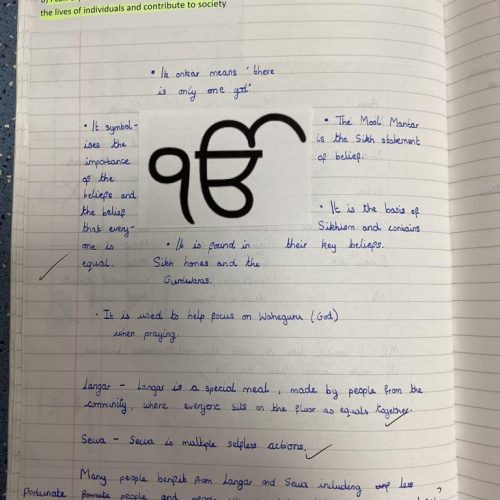 the lives of individuals and contribute to society
• Ik onkar means 'there
is only one god.'
• It symbol-
ises the
importance
of the
beliefs and
the belief
that every-
one is
equal.
ੴ
• The Mool Mantar
is the Sikh statement
of belief.
• It is the basis of
Sikhism and contains
their key beliefs.
• It is found in
Sikh homes and the
Gurdwaras.
• It is used to help focus on Waheguru (God)
when praying.
Langar - Langar is a special meal, made by people from the
community, where everyone sits on the floor as equals together.
Sewa - Sewa is multiple selfless actions.
Many people benefit from Langar and Sewa including less
fortunate people and